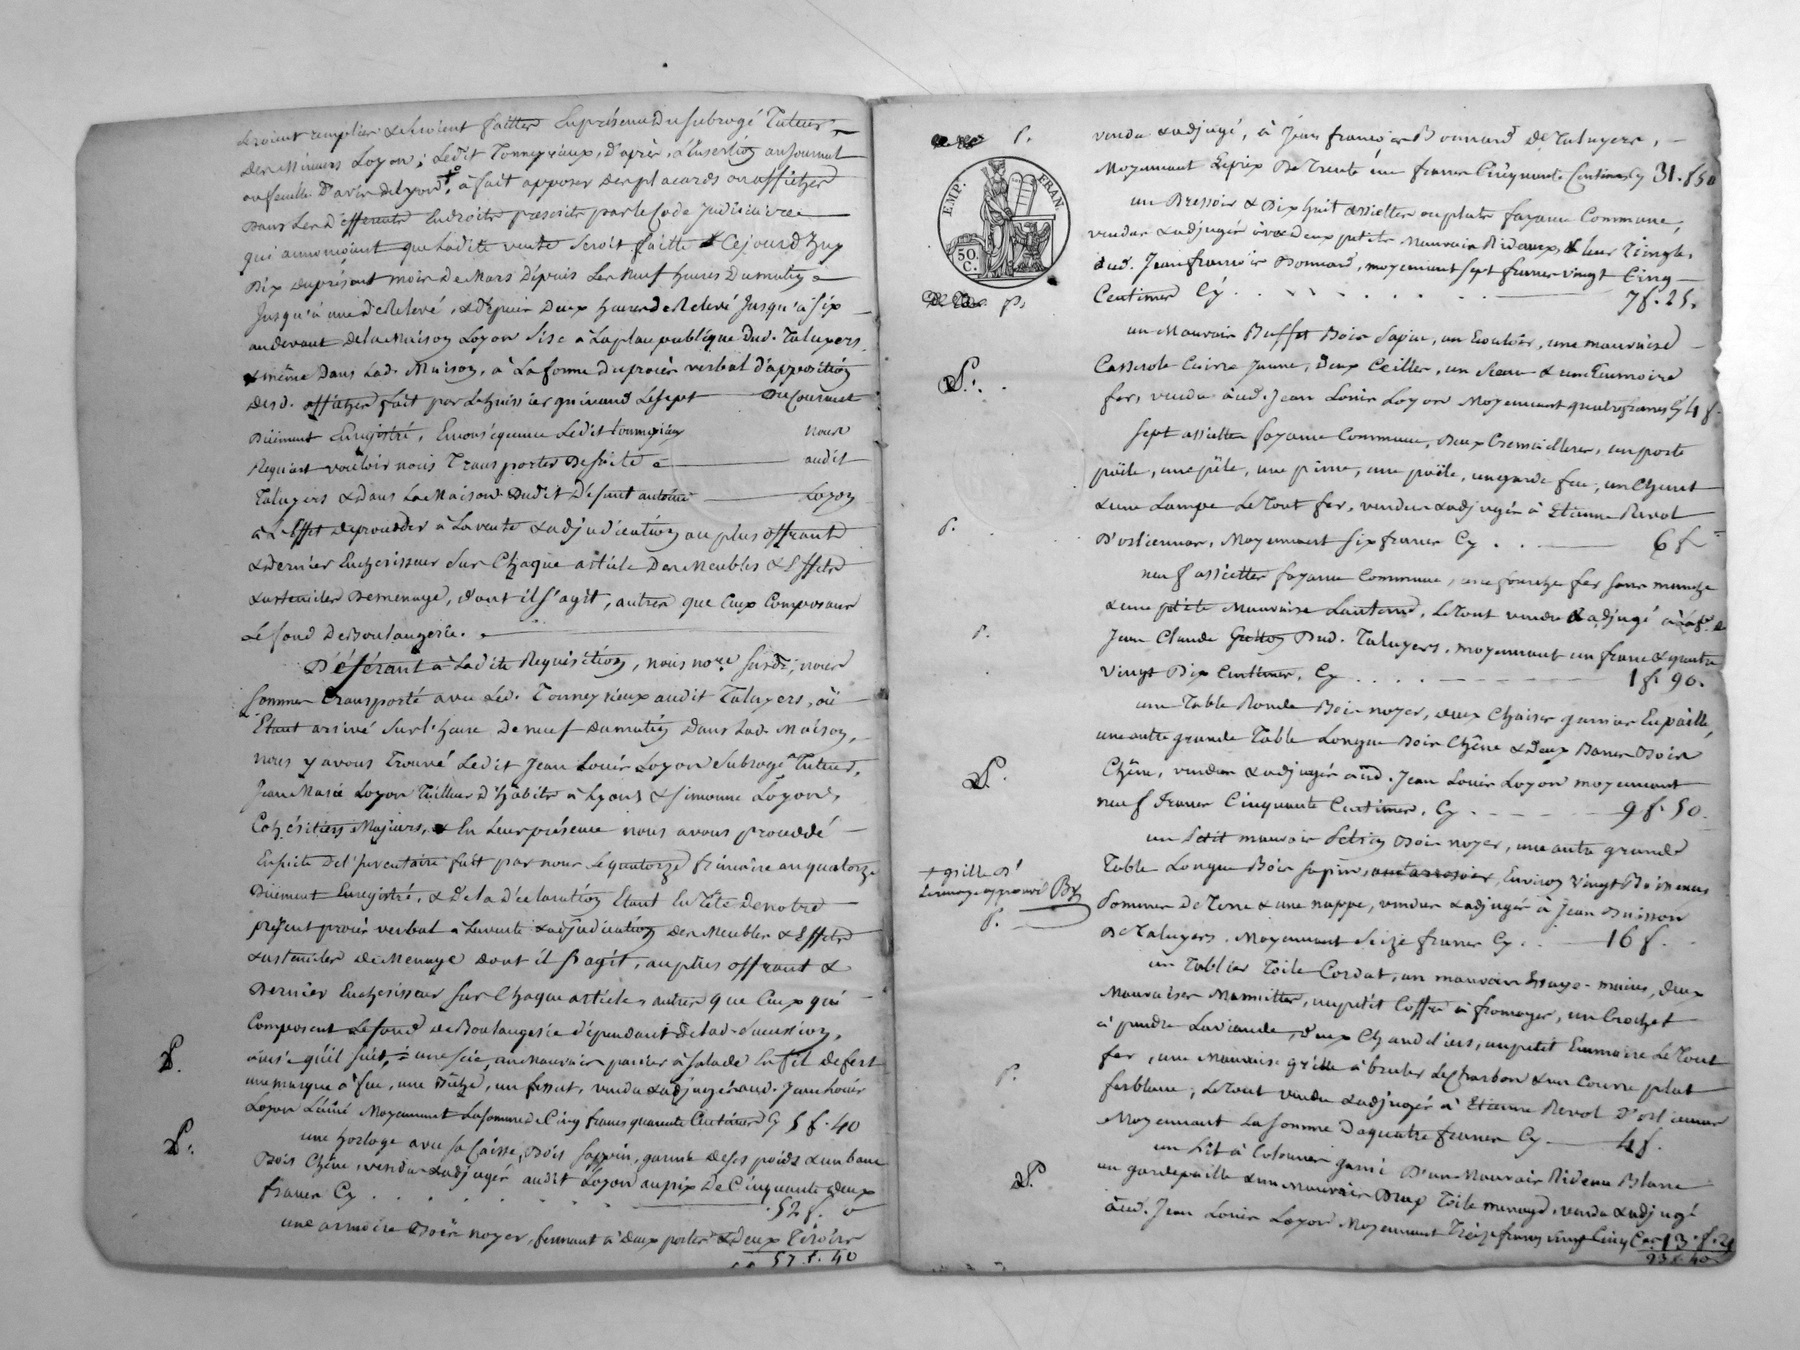 seroient remplies & seroient faittes En présence Du subrogé Tuteur
Des Mineurs Loyon; Ledit Tonneyrieux, D'après, L'insertion au Journal
ou feuille D'avis de Lyon, à fait apposer Des placards ou affiches
Dans Les Différents Endroits prescrits par le Code Judiciaire
qui annonçoient que Ladite vente seroit faitte Cejourd'huy
Dix Du présent mois de Mars Depuis Les Neuf heures Du matin
Jusqu'à une de Relevé, & Depuis Deux heures de Relevé Jusqu'à six
au devant De la Maison Loyon sise à La place publique Dud. Taluyers
& même Dans Lad. Maison, à La forme Du procès verbal d'apposition
Desd. affiches fait par L'huissier Le sept Du Courant
Düement Enregistré, En conséquence Ledit tonneyrieux nous
Requiert vouloir nous Transporter De suite audit
Taluyers & Dans La Maison Dudit Défunt antoine Loyon
à L'Effet de procéder à La vente & adjudication au plus offrant
& Dernier Enchérisseur Sur Chaque article Des Meubles & Effets
& ustenciles De menage, dont il s'agit, autres que Ceux Composant
Le fond De Boulangerie.
Déférant à Ladite Requisition, nous no.re susd. nous
sommes transporté avec Led. Tonneyrieux audit Taluyers, où
Etant arrivé Sur l'heure De neuf Du matin Dans Lad. Maison,
nous y avons Trouvé Ledit Jean Louis Loyon Subrogé Tuteur,
Jean Marie Loyon Tailleur D'habits à Lyon & simonne Loyon,
Cohéritiers Majeurs, & En Leur présence nous avons procédé
En suite De l'inventaire fait par nous Le quatorze frimaire an quatorze
Düement Enregistré, & De la déclaration Etant En Tête De notre
présent procès verbal à La vente & adjudication Des Meubles & Effets
& ustenciles de Menage dont il s'agit, au plus offrant &
Dernier Enchérisseur sur Chaque article, autres que Ceux qui
Composent Le fond de Boulangerie dépendant De lad. succession,
ainsi qu'il suit, = une scie, un mauvais panier à salade En fil de fer
P.
une marque à feu, une Bêche, un fessout, vendu & adjugés aud. Jean Louis
Loyon L'aîné Moyennant La somme de Cinq francs quarante Centimes Cy 5 f. 40
P.
une horloge avec sa Caisse, Bois sappin, garnie de ses poids & un banc
Bois Chêne, vendus & adjugés audit Loyon au prix De Cinquante deux
francs Cy . . . . 52 f. "
une armoire Bois noyer, fermant à deux portes & deux Tiroirs
57 f. 40
P.
vendu & adjugé, à Jean françois Bonnard De Taluyers,
Moyennant Le prix De Trente un francs Cinquante Centimes Cy 31. f 50
EMP. FRAN.
50. C.
un Dressoir & Dix huit assiettes ou plats fayance Commune,
vendus & adjugés avec Deux petits Mauvais Rideaux & leur Tringle,
aud. Jean françois Bonnard, moyennant sept francs vingt Cinq
P.
Centimes Cy . . . . 7 f. 25.
un Mauvais Buffet Bois Sapin, un Ecouloir, une mauvaise
P.
Casserole Cuivre Jaune, Deux Ceilles, un sceau & une Ecumoire
fer, vendu aud. Jean Louis Loyon Moyennant quatre francs Cy 4 f.
sept assiettes fayance Commune, Deux Cremaillères, un porte
poële, une pêle, une pince, une poële, un garde feu, un Chenet
& une Lampe Le Tout fer, vendus & adjugés à Etienne Revol
P.
D'orliennas, Moyennant six francs Cy . . 6 f.
neuf assiettes fayance Commune, une fourche fer sans manche
& une petite Mauvaise Lanterne, Le Tout vendu & adjugé à
P.
Jean Claude Dud. Taluyers, moyennant un franc & quatre
vingt Dix Centimes, Cy . . . . 1 f. 90.
une Table Ronde Bois noyer, deux Chaises garnies En paille,
une autre grande Table Longue Bois Chêne & Deux Bancs Bois
P.
Chêne, vendus & adjugés aud. Jean Louis Loyon moyennant
neuf francs Cinquante Centimes, Cy . . . 9 f. 50.
un Petit mauvais Petrin Bois noyer, une autre grande
Table Longue Bois sapin, une arrosoir, Environ Vingt
Pommes De Terre & une nappe, vendus & adjugés à Jean Buisson
P.
De Taluyers, Moyennant Seize francs Cy . . 16 f.
un Tablier Toile Cordat, un mauvais Essuye-mains, deux
Mauvaises Marmittes, un petit Coffre à fromages, un Crochet
à pendre La viande, deux Chandeliers, un petit Ecumoire Le Tout
P.
fer, une Mauvaise grille à bruler Le Charbon & un Couvre plat
ferblanc; Le Tout vendu & adjugés à Etienne Revol D'orlienas
Moyennant La somme De quatre francs Cy 4 f.
un Lit à Colonnes garni D'un Mauvais Rideau Blanc
P.
un gardepaille & un Mauvais Drap Toile menage, vendu & adjugé
aud. Jean Louis Loyon Moyennant Treize francs vingt Cinq C. 13. f. 25
93 f. 40